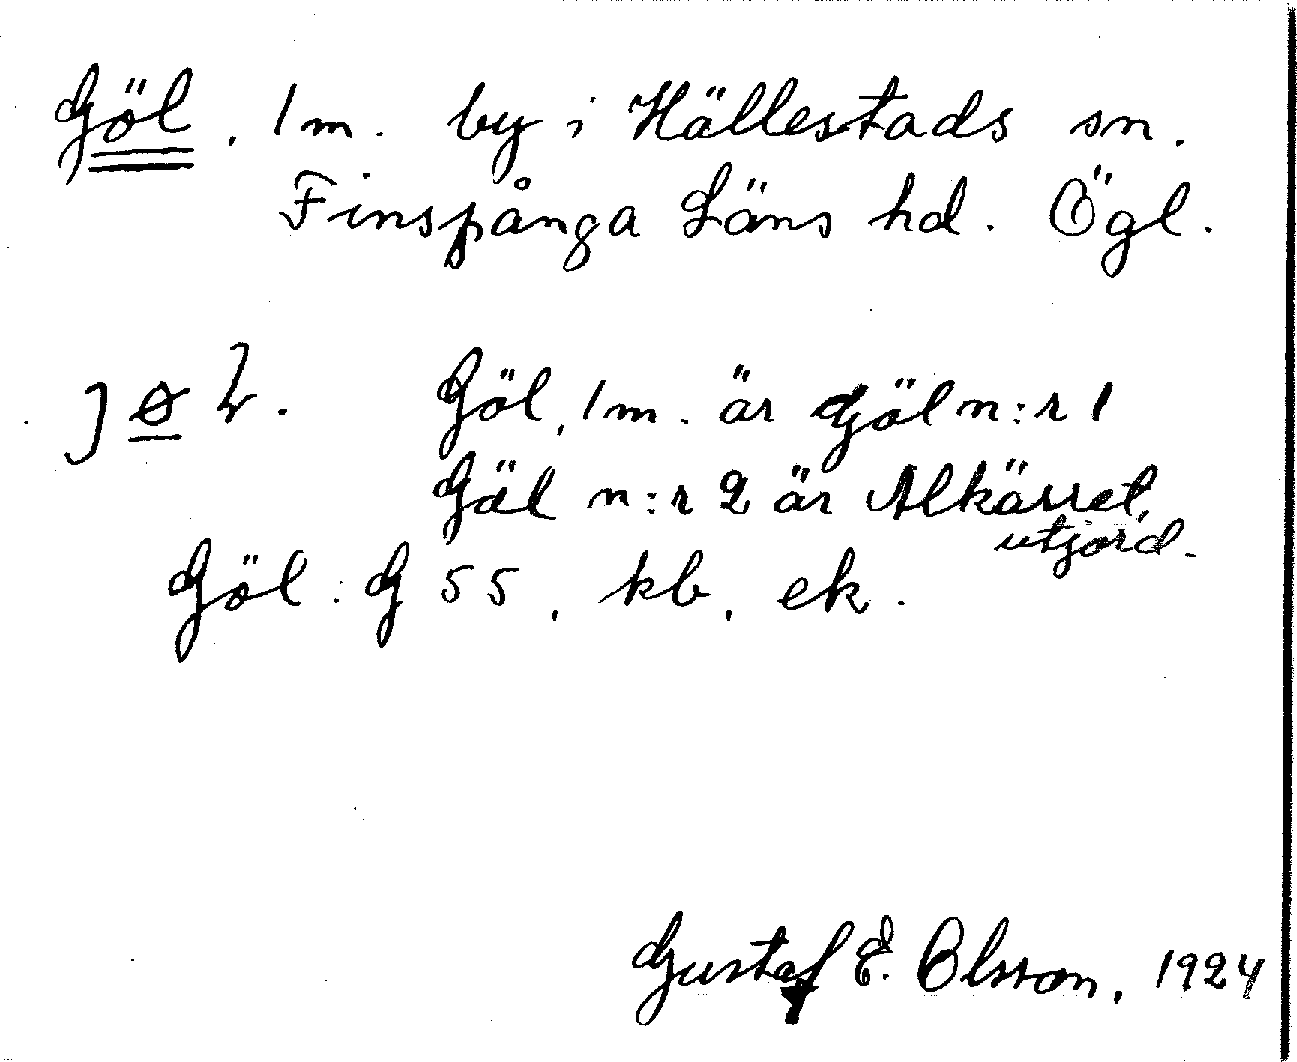 Göl, 1 m. by i Hällestads sn.
Finspånga Läns hd. Ögl.
Göl, 1 m. är Göl n:r 1
Göl n:r 2 är Alkärret,
utjord.
Göl: G 55, kb, ek.
Gustaf E. Olsson, 1924